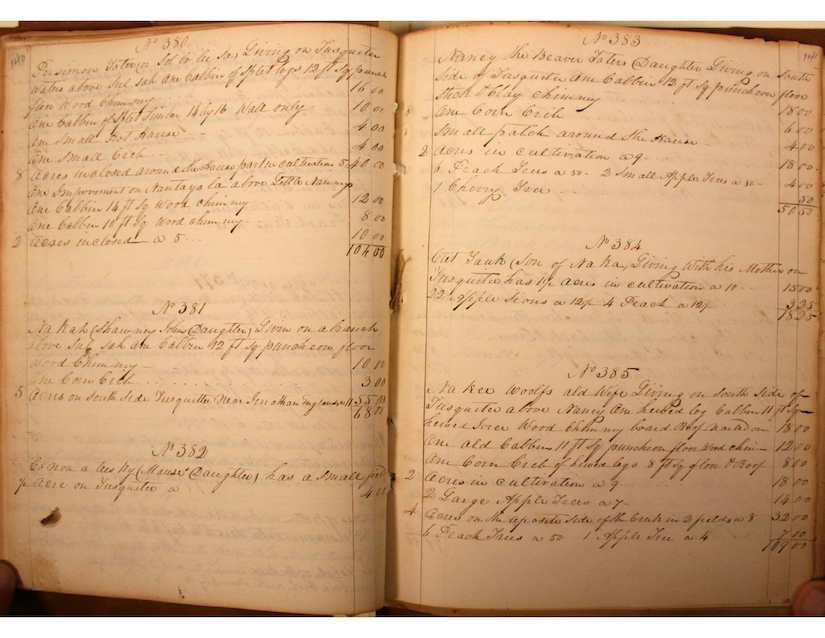 No 380
Persimon Toter
Living on Tusquitee
waters above
one Cabbin of Split logs 12 ft Sq punch
floor Wood Chimny 16 00
one Cabbin of Split Timber 14 by 16 Wall only 10 00
one Small Hot House 4 00
one Small Crib 4 00
8 acres inclosed around the House part in cultivation 5 40 00
one Improvement on above Little
one Cabbin 14 ft Sq Wood chimny 12 00
one Cabbin 10 ft Sq Wood chimny 8 00
2 acres inclosed @ 5 10 00
104 00
No 381
Na kah (Daughter) Living on a branch
above one Cabbin 12 ft Sq puncheon floor
Wood Chimney 10 00
one Corn Crib 3 00
5 acres on South Side Tusquittee Near Jonathan 11 55 00
68 00
No 382
(Daughter) has a Small field
acre on Tusquitee @ 4 00
No 383
Nancy the Beaver Toters Daughter Living on South
Side of Tusquitee one Cabbin 12 ft Sq puncheon floor
Stick & Clay chimny 18 00
one Corn Crib 6 00
Small patch around the House 4 00
2 acres in cultivation @ 9 18 00
6 Peach Trees @ 50 2 Small Apple Trees @ 50 4 00
1 Cherry Tree 50
50 50
No 384
Cut Tauk (Son of Na ka) Living With his Mother on
Tusquitee has 1½ acres in cultivation @ 10 15 00
22 Apple Sions @ 12½ 4 Peach @ 12½ 3 25
18 25
No 385
Na kee Woolfs old Wife Living on South Side of
Tusquitee above Nancy one hewed log Cabbin 11 ft Sq
hewed Wood Chimny board Roof Nailed on 18 00
one old Cabbin 11 ft Sq puncheon floor Wood chim 12 00
one Corn Crib of hewed logs 8 ft Sq floor & Roof 8 00
2 acres in cultivation @ 9 18 00
2 Large Apple Trees @ 7 14 00
4 acres on the oposite Side of the Creek in 2 fields @ 8 32 00
6 Peach Trees @ 50 1 Apple Tree @ 4 7 00
109 00